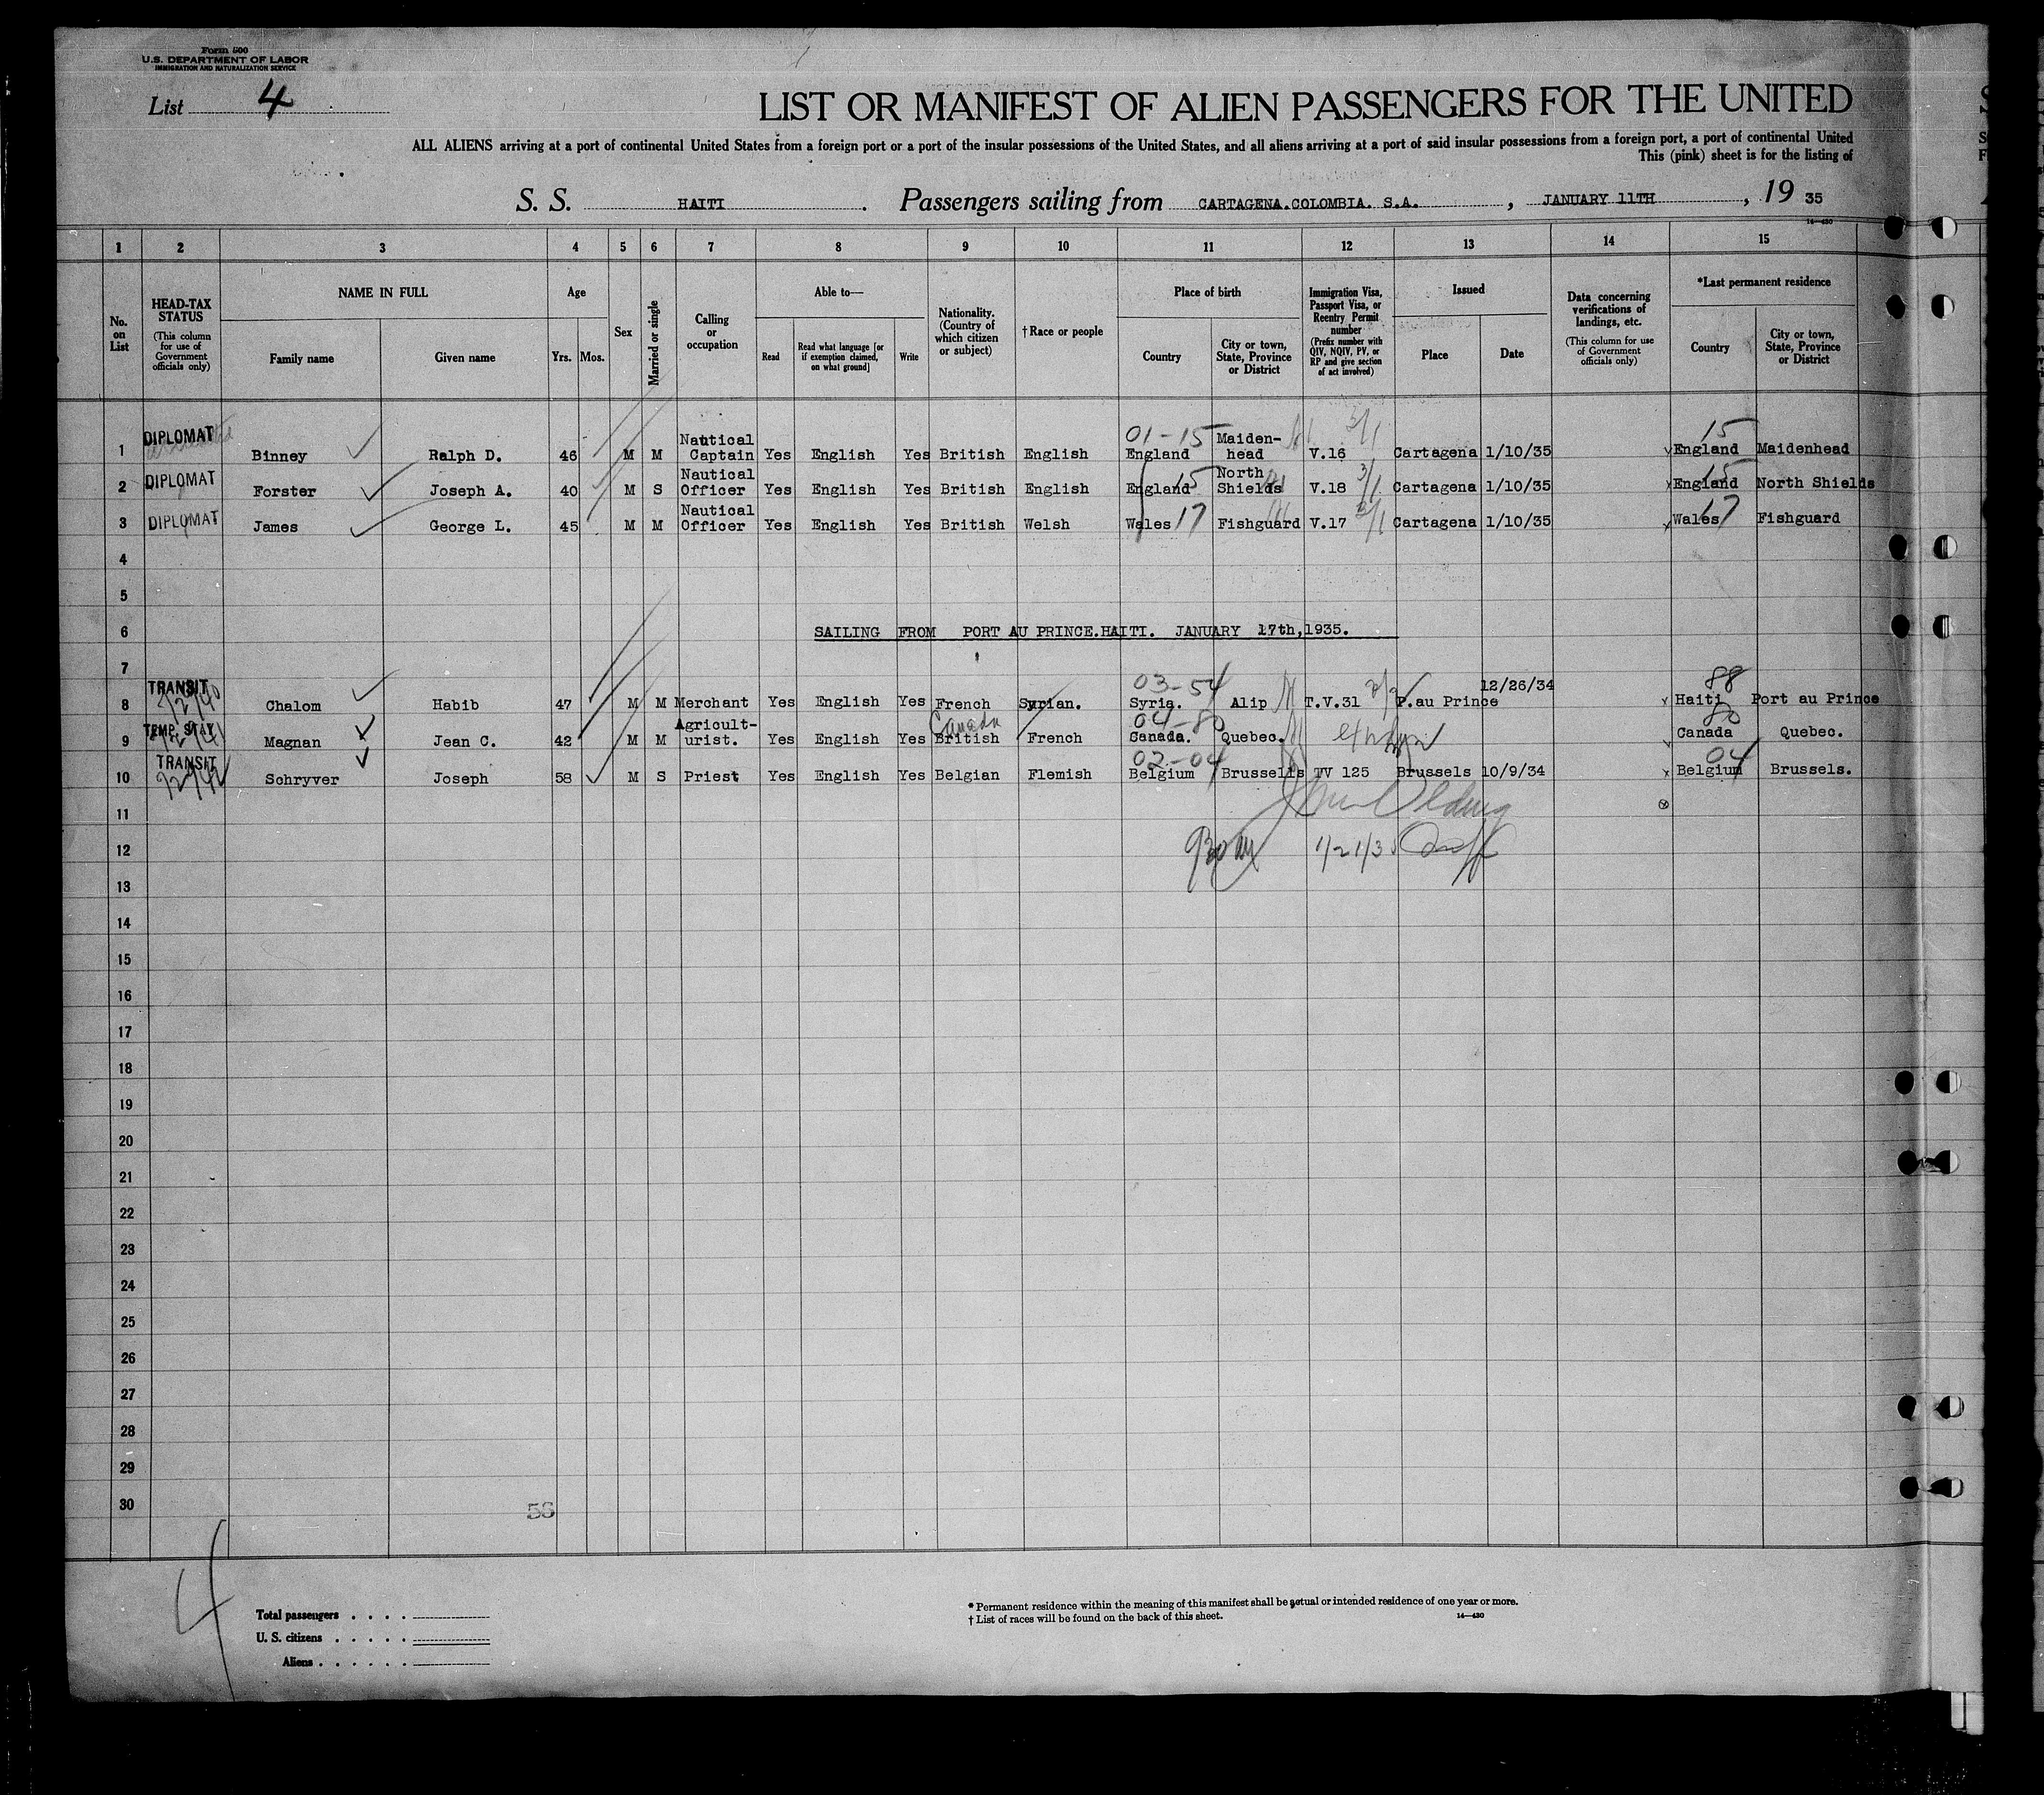 Form 500
U.S. DEPARTMENT OF LABOR
IMMIGRATION AND NATURALIZATION SERVICE
List 4
LIST OR MANIFEST OF ALIEN PASSENGERS FOR THE UNITED
ALL ALIENS arriving at a port of continental United States from a foreign port or a port of the insular possessions of the United States, and all aliens arriving at a port of said insular possessions from a foreign port, a port of continental United
This (pink) sheet is for the listing of
S. S. HAITI. Passengers sailing from CARTAGENA.COLOMBIA. S.A., JANUARY 11TH, 19 35
14—430
1 2 3 4 5 6 7 8 9 10 11 12 13 14 15
No. on List
HEAD-TAX STATUS (This column for use of Government officials only)
NAME IN FULL
Family name Given name
Age
Yrs. Mos.
Sex
Married or single
Calling or occupation
Able to—
Read Read what language [or if exemption claimed, on what ground] Write
Nationality. (Country of which citizen or subject)
† Race or people
Place of birth
Country City or town, State, Province or District
Immigration Visa, Passport Visa, or Reentry Permit number (Prefix number with QIV, NQIV, PV, or RP and give section of act involved)
Issued
Place Date
Data concerning verifications of landings, etc. (This column for use of Government officials only)
*Last permanent residence
Country City or town, State, Province or District
1 DIPLOMAT Binney Ralph D. 46 M M Nautical Captain Yes English Yes British English 01-15 England Maiden-head V.16 3/1 Cartagena 1/10/35 15 England Maidenhead
2 DIPLOMAT Forster Joseph A. 40 M S Nautical Officer Yes English Yes British English England 15 North Shields V.18 3/1 Cartagena 1/10/35 England 15 North Shields
3 DIPLOMAT James George L. 45 M M Nautical Officer Yes English Yes British Welsh Wales 17 Fishguard V.17 3/1 Cartagena 1/10/35 Wales 17 Fishguard
4
5
6 SAILING FROM PORT AU PRINCE.HAITI. JANUARY 17th,1935.
7
8 TRANSIT Chalom Habib 47 M M Merchant Yes English Yes French Syrian. 03-54 Syria. Alip T.V.31 P.au Prince 12/26/34 88 Haiti Port au Prince
9 TEMP. STAY Magnan Jean C. 42 M M Agricult-urist. Yes English Yes Canada British French 04-80 Canada. Quebec. 80 Canada Quebec.
10 TRANSIT Schryver Joseph 58 M S Priest Yes English Yes Belgian Flemish 02-04 Belgium Brussels TV 125 Brussels 10/9/34 04 Belgium Brussels.
11
12
13
14
15
16
17
18
19
20
21
22
23
24
25
26
27
28
29
30
56
4
Total passengers . . . .
U. S. citizens . . . . .
Aliens . . . . . .
* Permanent residence within the meaning of this manifest shall be actual or intended residence of one year or more.
† List of races will be found on the back of this sheet. 14—430